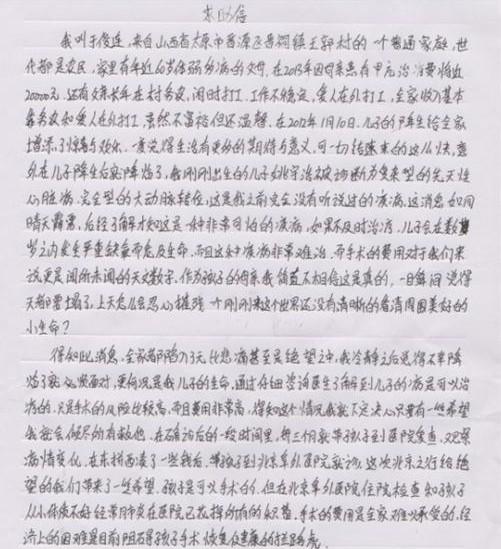 求助信
我叫于俊连，来自山西省太原市晋源区晋祠镇王郭村的一个普通家庭，世
代都是农民，家里有年近60岁体弱多病的父母，在2013年因母亲患有甲亢治消费将近
20000元，还有父亲长年在村务农，闲时打工，工作不稳定，爱人在外打工，全家收入基本
靠务农和爱人在外打工，虽然不富裕但还温馨，在2012年1月10日，儿子的降生给全家
增添了惊喜与欢乐，一直觉得生活有更多的期待与意义，可一切转速来的这么快，意
外在儿子降生后突降临了，我刚刚出生的儿子姚宇浩被诊断为复杂型的先天性
心脏病，完全型的大动脉转位，这是我之前完全没有听说过的疾病，这消息如同
晴天霹雳，后经了解才知这是一种非常可怕的疾病，如果不及时治疗，儿子会在数
岁之内发生严重缺氧而危及生命，而且这种疾病非常难治，而手术的费用对于我们来
说更是闻所未闻的天文数字，作为孩子的母亲，我简直不相信这是真的，一瞬间觉得
天都要塌了，上天怎么忍心摧残一个刚刚来这个世界还没有清晰的看清周围美好的
小生命？
得知此消息，全家都陷入了无比悲痛甚至是绝望之中，我冷静之后觉得不幸降
临了就必须面对，更何况是我儿子的生命，通过仔细咨询医生了解到儿子的病是可以治
病的，只是手术的风险比较高，而且费用非常高，得知这个情况我就下定决心只要有一些希望
我就会倾尽所有救他，在确诊后的一段时间里，每三个月就带孩子到医院复查，观察
病情变化，在东拼西凑了一些钱后，带孩子到北京阜外医院就诊，这次北京之行给绝
望的我们带来了一些希望，孩子是可以手术的，但在北京阜外医院住院检查知孩子
从小体质不好经常肺炎在医院已花掉所有的积蓄，手术的费用是全家难以承受的，经
济上的困难是目前阻碍孩子手术恢复健康的拦路虎。